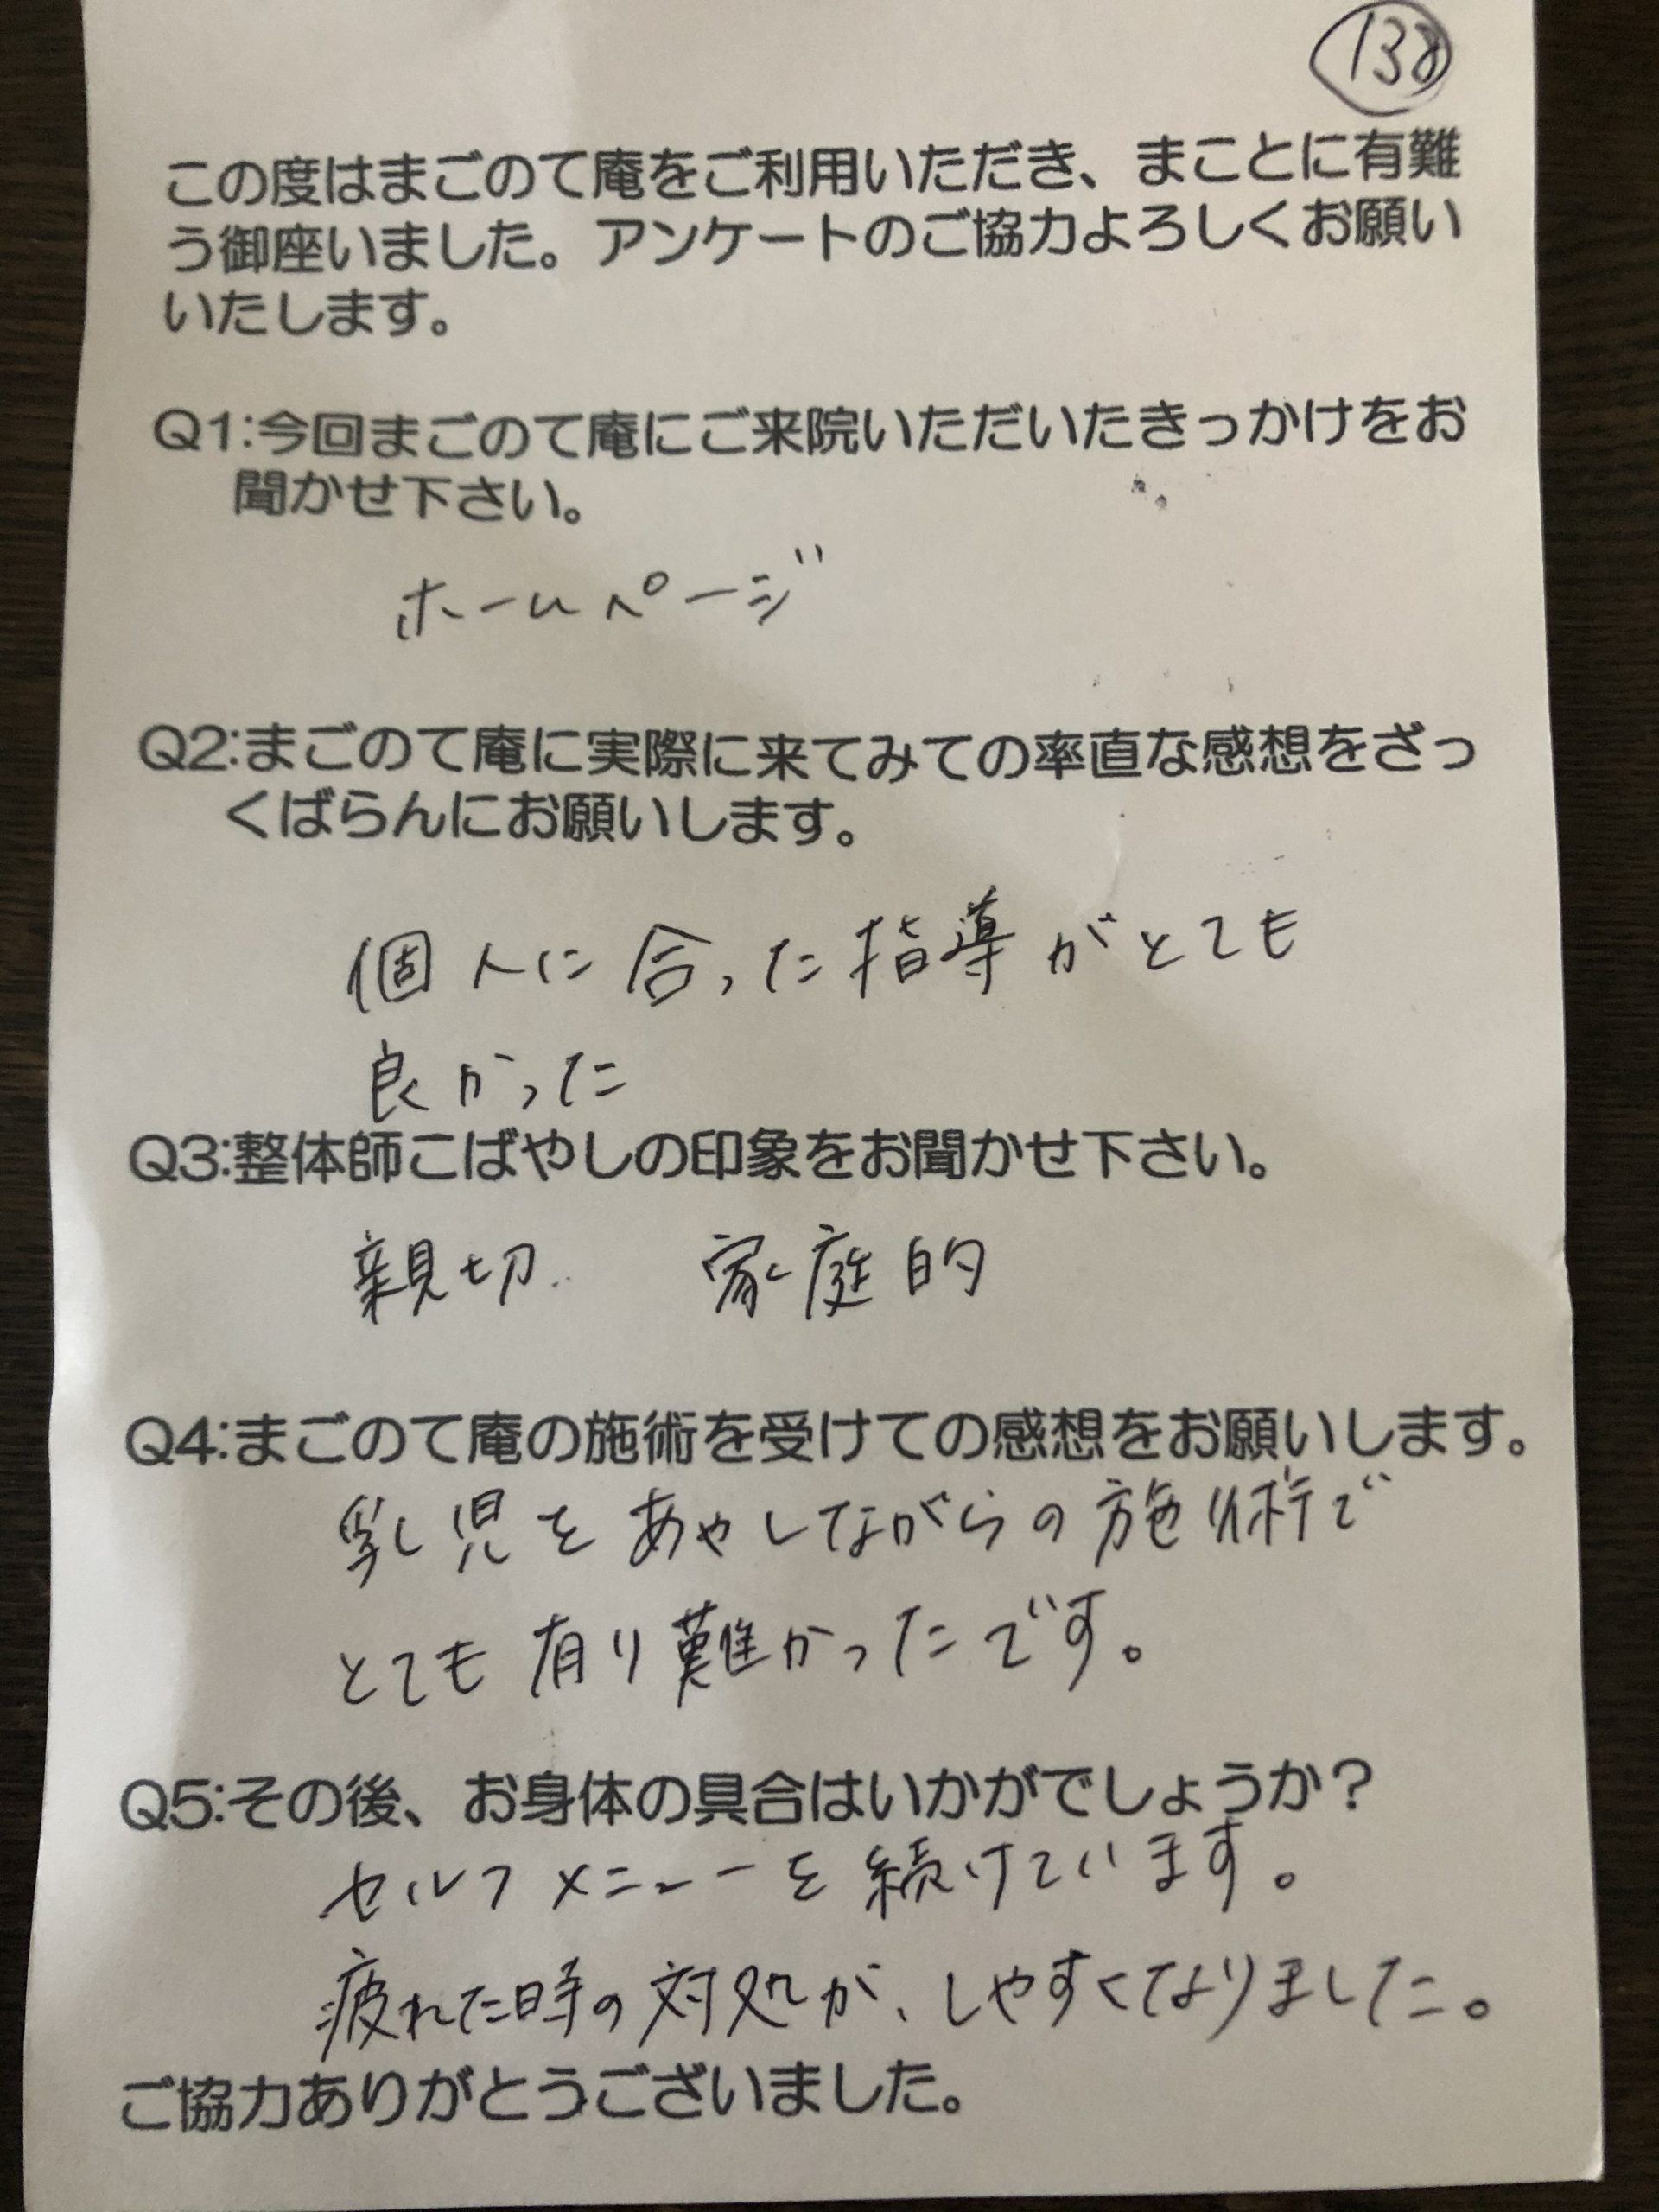 138
この度はまごのて庵をご利用いただき、まことに有難
う御座いました。アンケートのご協力よろしくお願い
いたします。
Q1:今回まごのて庵にご来院いただいたきっかけをお
聞かせ下さい。
ホームページ
Q2:まごのて庵に実際に来てみての率直な感想をざっ
くばらんにお願いします。
個人に合った指導がとても
良かった
Q3:整体師こばやしの印象をお聞かせ下さい。
親切 家庭的
Q4:まごのて庵の施術を受けての感想をお願いします。
乳児をあやしながらの施術で
とても有り難かったです。
Q5:その後、お身体の具合はいかがでしょうか？
セルフメニューを続けています。
疲れた時の対処が、しやすくなりました。
ご協力ありがとうございました。